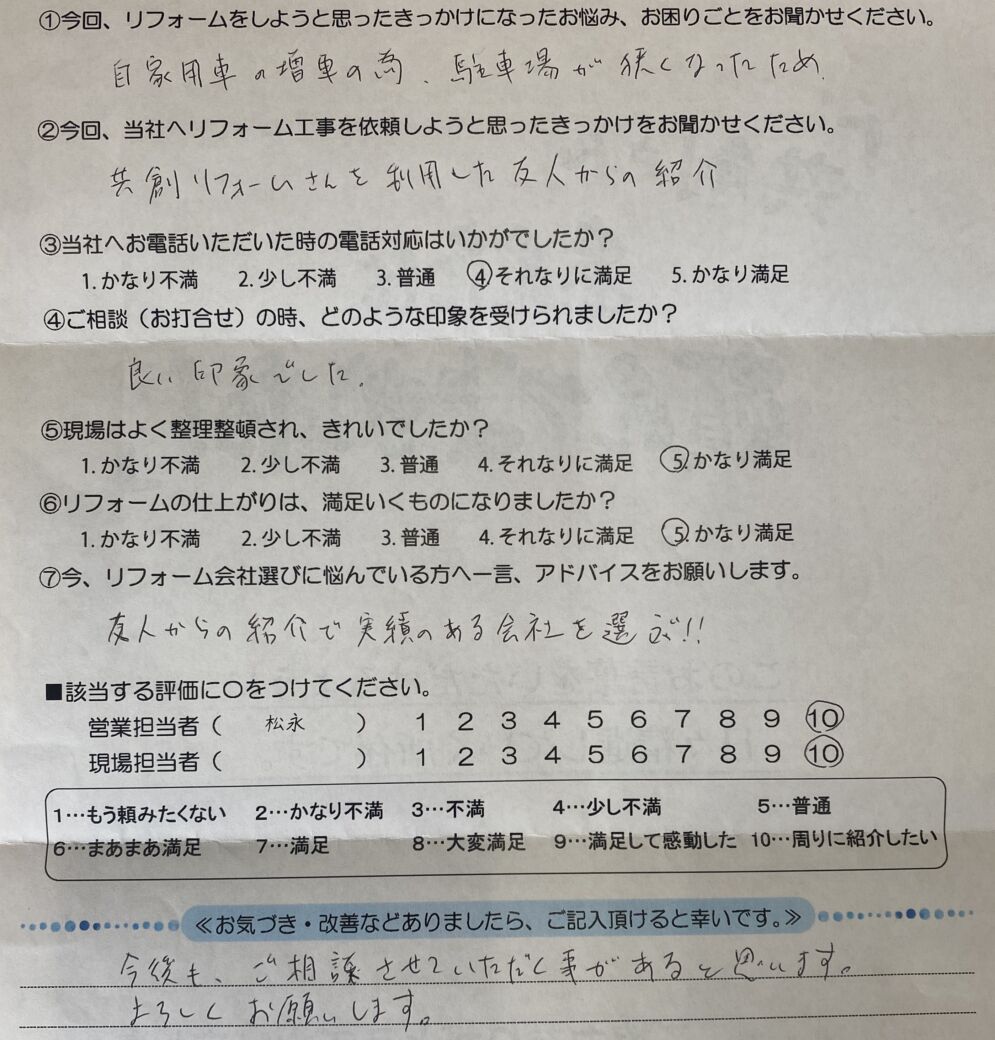 ①今回、リフォームをしようと思ったきっかけになったお悩み、お困りごとをお聞かせください。
自家用車の増車の為、駐車場が狭くなったため。
②今回、当社へリフォーム工事を依頼しようと思ったきっかけをお聞かせください。
共創リフォームさんを利用した友人からの紹介
③当社へお電話いただいた時の電話対応はいかがでしたか？
1. かなり不満 2. 少し不満 3. 普通 4. それなりに満足 5. かなり満足
④ご相談（お打合せ）の時、どのような印象を受けられましたか？
良い印象でした。
⑤現場はよく整理整頓され、きれいでしたか？
1. かなり不満 2. 少し不満 3. 普通 4. それなりに満足 5. かなり満足
⑥リフォームの仕上がりは、満足いくものになりましたか？
1. かなり不満 2. 少し不満 3. 普通 4. それなりに満足 5. かなり満足
⑦今、リフォーム会社選びに悩んでいる方へ一言、アドバイスをお願いします。
友人からの紹介で実績のある会社を選ぶ!!
■該当する評価に〇をつけてください。
営業担当者（ 松永 ） 1 2 3 4 5 6 7 8 9 10
現場担当者（ ） 1 2 3 4 5 6 7 8 9 10
1…もう頼みたくない 2…かなり不満 3…不満 4…少し不満 5…普通
6…まあまあ満足 7…満足 8…大変満足 9…満足して感動した 10…周りに紹介したい
≪お気づき・改善などありましたら、ご記入頂けると幸いです。≫
今後も、ご相談させていただく事があると思います。
よろしくお願いします。